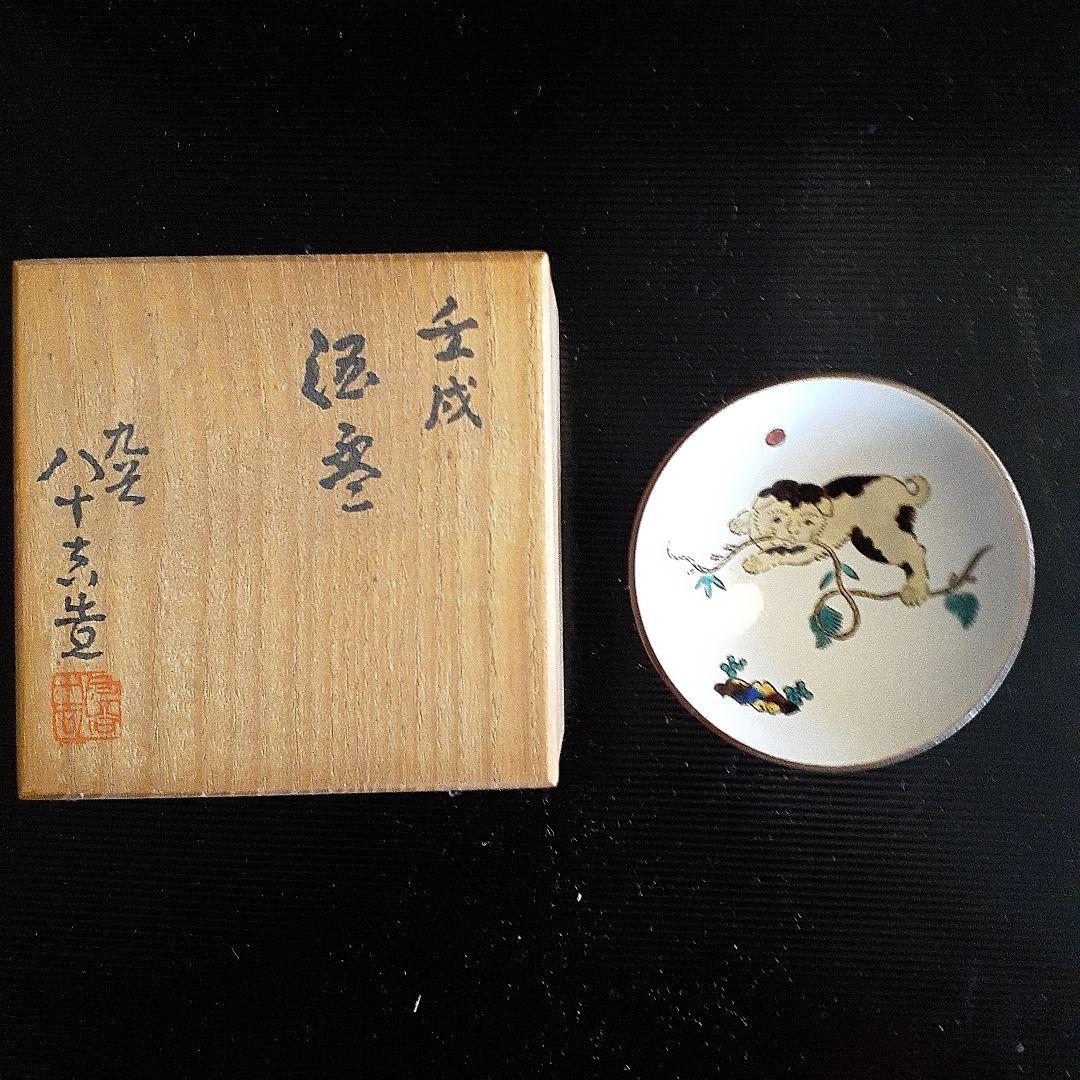 壬戌
酒盃
九谷
八十吉造